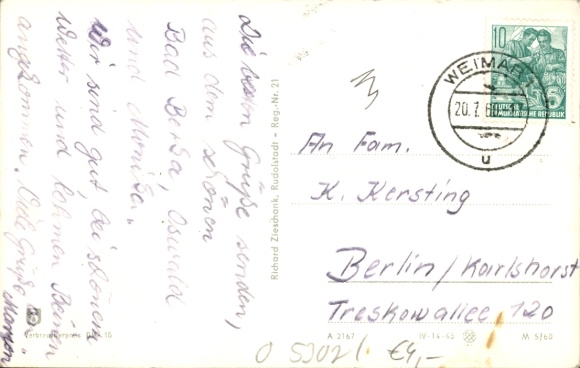 Die besten Grüße senden,
aus dem schönen
Bad Berka, Oswald
und Monika.
Wir sind gut, bei schönen
Wetter und lehmen Beinen
angekommen. Viele Grüße an
Marion
Richard Zieschank, Rudolstadt – Reg.-Nr. 21
10
DEUTSCHE
DEMOKRATISCHE REPUBLIK
WEIMAR
20.7.6
u
An Fam.
K. Kersting
Berlin/Karlshorst
Treskowallee, 120
A 2167 IV-14-45 M 5/60
Verbraucherpreis
O 5302 €4,-